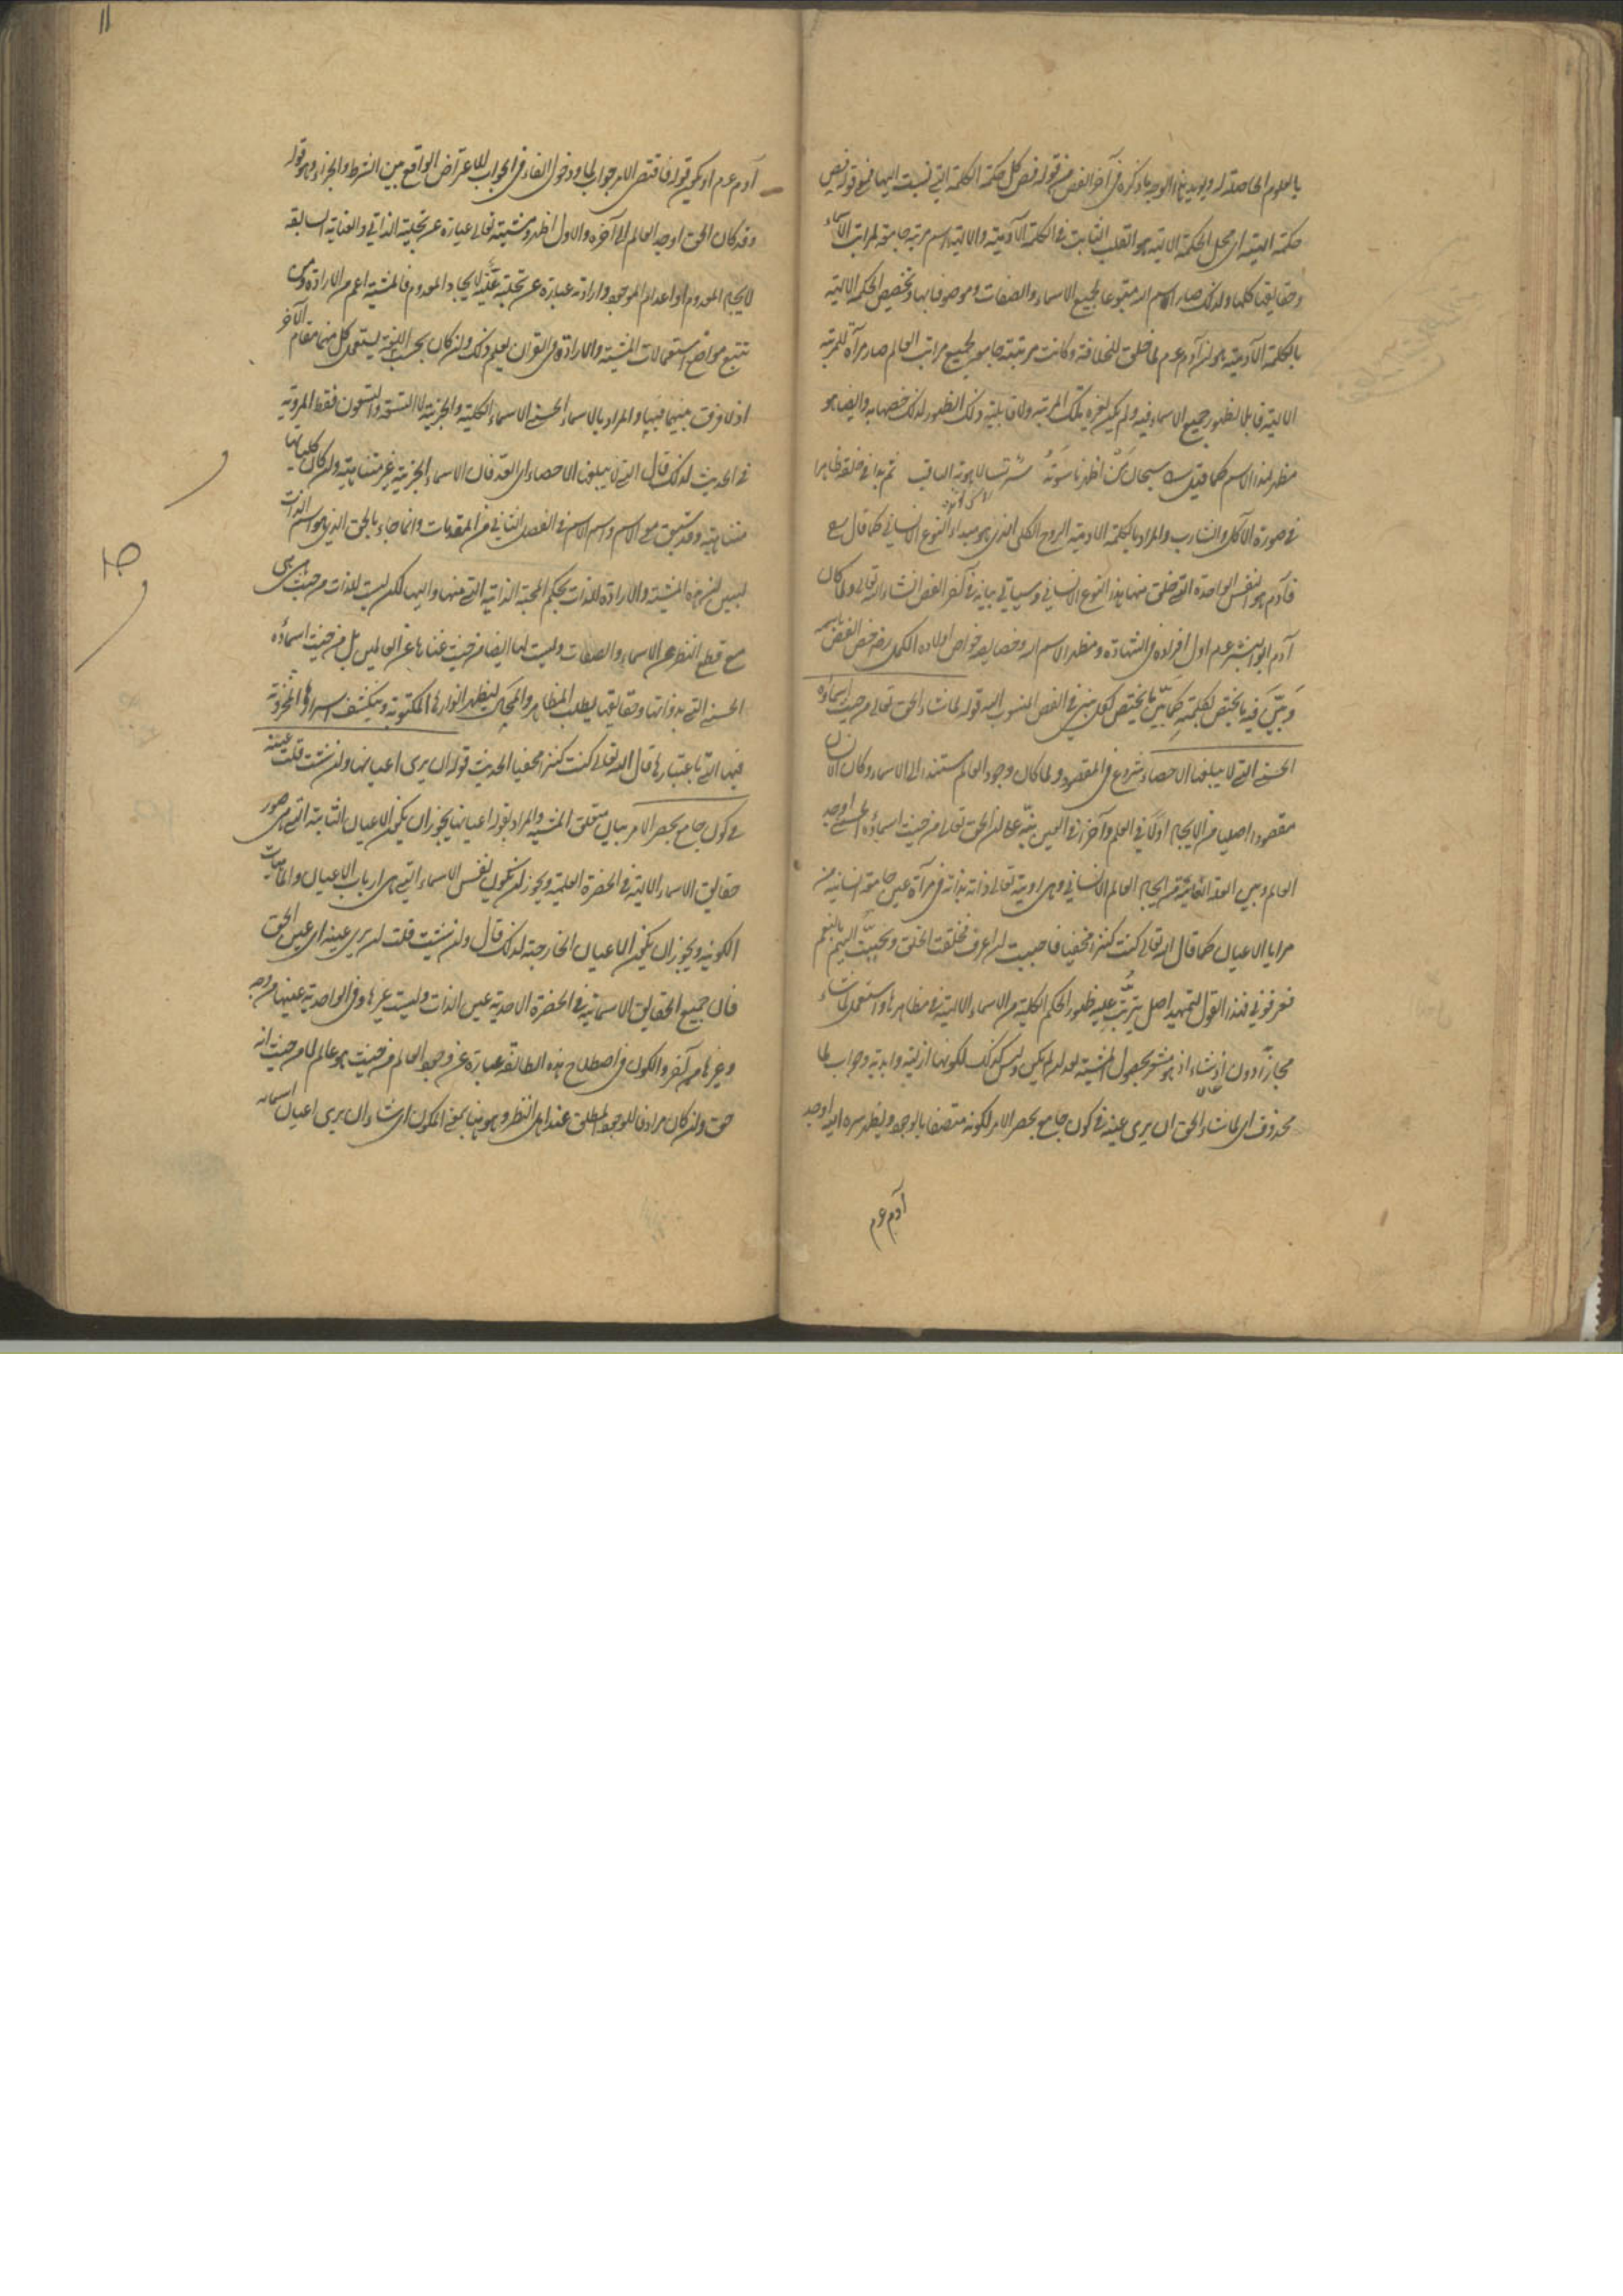 بالعلوم الحاصلة له ويؤيد هذا الوجه ما ذكره في آخر الفص من قوله فص كل حكمة الكلمة التي نسبت اليها فمعنى قوله فص
حكمة الهية اى محل الحكمة الالهية هو القلب الثابت في الكلمة الآدمية والالهية اسم مرتبة جامعة لمراتب الاسماء
وحقايقها كلها ولذلك صار الاسم الله متبوعا لجميع الاسماء والصفات وموصوفا بها وتخصيص الحكمة الالهية
بالكلمة الآدمية هو لان آدم عم لما خلق للخلافة وكانت مرتبته جامعة لجميع مراتب العالم صار مرآة للمرتبة
الالهية قابلا لظهور جميع الاسماء فيه ولم يكن لغيره تلك المرتبة ولا قابلية ذلك الظهور لذلك خصها به وايضا هو
مظهر لهذا الاسم كما قيل سبحان من اظهر ناسوته سر سنا لاهوته الثاقب ثم بدا في خلقه ظاهرا
في صورة الآكل والشارب والمراد بالكلمة الادمية الروح الكلى الذى هو مبداء النوع الانساني كما قال
فآدم هو النفس الواحدة التي خلق منها هذا النوع الانساني وسيأتي بيانه في آخر الفص انشاء الله تعالى ولما كان
آدم ابو البشر عم اول افراده في الشهادة ومظهر الاسم الله وخصايصه خواص اولاده الكمل رض خص الفص باسمه
وبين فيه ما يختص بكلمته كما بين ما يختص لكل نبي في الفص المنسوب اليه قوله لما شاء الحق تعالى من حيث اسماؤه
الحسنى التي لا يبلغها الاحصاء شروع في المقصود ولما كان وجود العالم مستندا الى الاسماء وكان الانسان
مقصودا اصليا من الايجاد اولا في العلم وآخرا في العين نبه على ان الحق تعالى من حيث اسماؤه الحسنى اوجد
العالم وبين العلة الغائية من ايجاد العالم الانساني وهى رؤيته تعالى ذاته بذاته في مرآة عين جامعة انسانية من
مرايا الاعيان كما قال الله تعالى كنت كنزا مخفيا فاحببت ان اعرف فخلقت الخلق وتحببت اليهم بالنعم
فعرفوني فهذا القول تمهيد اصل يترتب عليه ظهور الحكم الكلية من الاسماء الالهية في مظاهرها واستعمل لما شاء
مجازا دون اذ شاء اذ هو مشعر بحصول المشية بعد ان لم يكن وليس كذلك لكونها ازلية وابدية وجواب لما
محذوف اى لما شاء الحق ان يرى عينه في كون جامع يحصر الامر لكونه متصفا بالوجود ويظهر سره اليه اوجد
آدم عم
١١
آدم عم او يكون قوله فاقتضى الامر جوابا لما ودخول الفاء في الجواب للاعتراض الواقع بين الشرط والجزاء وهو قوله
وقد كان الحق اوجد العالم الى آخره والاول اظهر ومشيته تعالى عبارة عن تجليه الذاتي والعناية السابقة
لايجاد المعدوم او اعدام الموجود وارادته عبارة عن تجليه لايجاد المعدوم فالمشية اعم من الارادة ومن
تتبع مواضع استعمالات المشية والارادة في القران يعلم ذلك وان كان بحسب اللغة يستعمل كل منهما مقام الآخر
اذ لا فرق بينهما فيها والمراد بالاسماء الحسنى الاسماء الكلية والجزئية لا التسعة والتسعون فقط المروية
في الحديث لذلك قال التي لا يبلغها الاحصاء اى العد فان الاسماء الجزئية غير متناهية وان كان كلياتها
متناهية وقد سبق معنى الاسم واسم الاسم في الفصل الثاني من المقدمات وانما جاء بالحق الذى هو اسم الذات
ليبين ان هذه المشية والارادة للذات بحكم المحبة الذاتية التي منها واليها لكن ليست للذات من حيث هى هى
مع قطع النظر عن الاسماء والصفات وليست لها ايضا من حيث غناها عن العالمين بل من حيث اسماؤه
الحسنى التي بذواتها وحقايقها يطلب المظاهر والمجالى ليظهر انوارها المكنونة وينكشف اسرارها المخزونة
فيها التي باعتبارها قال الله تعالى كنت كنزا مخفيا الحديث قوله ان يرى اعيانها وان شئت قلت عينه
في كون جامع يحصر الامر بيان متعلق المشية والمراد بقوله اعيانها يجوز ان يكون الاعيان الثابتة التي هى صور
حقايق الاسماء الالهية في الحضرة العلمية ويجوز ان يكون نفس الاسماء التي هى ارباب الاعيان والماهيات
الكونية ويجوز ان يكون الاعيان الخارجية لذلك قال وان شئت قلت ان يرى عينه اى عين الحق
فان جميع الحقايق الاسمائية في الحضرة الاحدية عين الذات وليست غيرها وفي الواحدية عينها من وجه
وغيرها من آخر والكون في اصطلاح هذه الطائفة عبارة عن وجود العالم من حيث هو عالم لا من حيث انه
حق وان كان مرادفا للوجود المطلق عند اهل النظر وهو هنا بمعنى المكون اى شاء ان يرى اعيان اسمائه